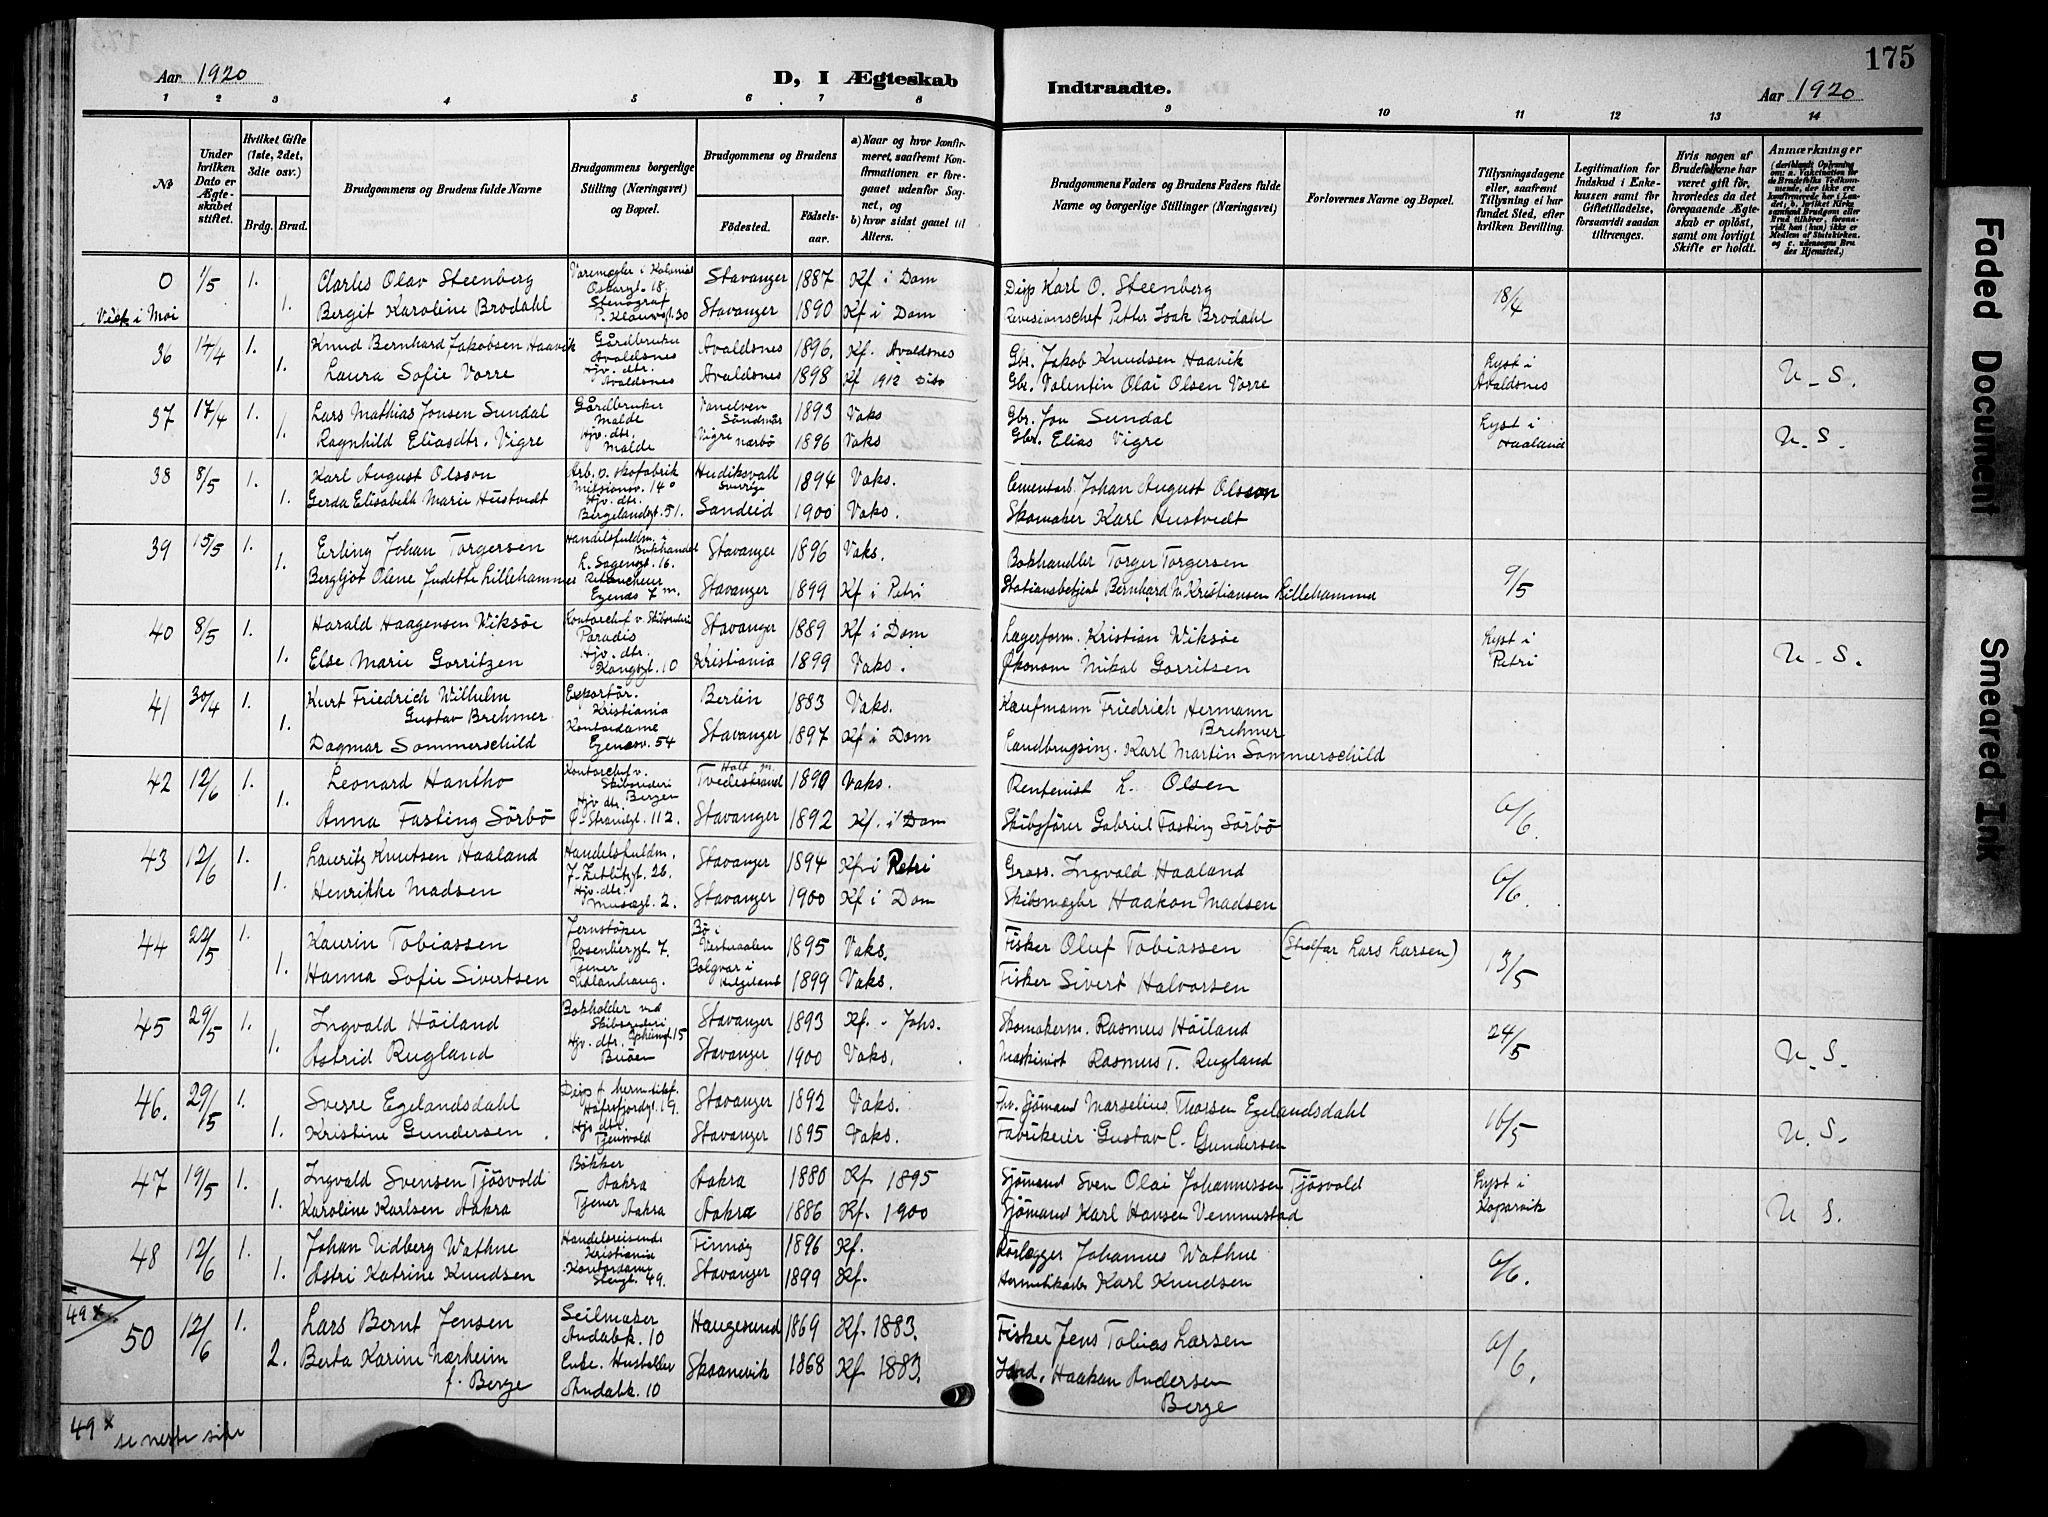 Aar 1920
D, I Ægteskab
Indtraadte.
175
Aar 1920
1 2 3 4 5 6 7 8 9 10 11 12 13 14
No
Under hvilken Dato er Ægteskabet stiftet.
Hvilket Gifte (1ste, 2det, 3die osv.)
Brdg. Brud.
Brudgommens og Brudens fulde Navne
Brudgommens borgerlige Stilling (Næringsvei) og Bopæl.
Brudgommens og Brudens
Födested. Födselsaar.
a) Naar og hvor konfirmeret, saafremt Konfirmationen er foregaaet udenfor Sognet, og
b) hvor sidst gaaet til Alters.
Brudgommens Faders og Brudens Faders fulde Navne og borgerlige Stillinger (Næringsvei)
Forlovernes Navne og Bopæl.
Tillysningsdagene eller, saafremt Tillysning ei har fundet Sted, efter hvilken Bevilling.
Legitimation for Indskud i Enkekassen samt for Giftetilladelse, forsaavidt saadan tiltrænges.
Hvis nogen af Brudefolkene har været gift för, hvorledes da det foregaaende Ægteskab er oplöst, samt om lovligt Skifte er holdt.
Anmærkninger
0 1/5 1. Charles Olav Steenberg Varemægler i Kolonial Stavanger 1887 Kf i Dom Disp Karl O. Steenberg 18/4
Viet i Moi 1. Bergit Karoline Brodahl Stenograf Stavanger 1890 Kf i Dom Revisionschef Petter Isak Brodahl
36 14/4 1. Knud Bernhard Jakobsen Haavik Gårdbruker Avaldsnes Avaldsnes 1896. Kf. Avaldsnes Gbr. Jakob Knudsen Haavik Lyst i Avaldsnes
1. Laura Sofie Vorre Hjv. dtr. Avaldsnes Avaldsnes 1898 Kf 1912 Dito Gbr. Valentin Olai Olsen Vorre U. S.
37 17/4 1. Lars Mathias Jonsen Sundal Gårdbruker Malde Vanelven Söndmör 1893 Vaks Gbr. Jon Sundal Lyst i Haaland
1. Ragnhild Eliasdtr. Vigre Hjv. dtr. Malde Vigre Nærbö 1896 Vaks Gbr. Elias Vigre U. S.
38 8/5 1. Karl August Olsson Arb. v. skofabrik Misjonsv. 14 Hudiksvall Sverige 1894 Vaks. Cementarb. Johan August Olsson
1. Gerda Elisabeth Marie Hustvedt Hjv. dtr. Bergelandsgt. 51. Sandeid 1900 Vaks. Skomaker Karl Hustvedt
39 15/5 1. Erling Johan Torgersen Handelsfuldm. i Bokhandel L. Sagensgt. 16. Stavanger 1896 Vaks. Bokhandler Torger Torgersen
1. Bergljot Olene Judette Lillehammer Stavanger 1899 Kf i Petri Stationsbetjent Bernhard M. Kristiansen Lillehammer 9/5
40 8/5 1. Harald Haagensen Wiksöe Kontorchef v. Skibsrederi Paradis Stavanger 1889 Kf i Dom Lagerform. Kristian Wiksöe Lyst i Petri
1. Else Marie Gorritzen Hjv. dtr. Kongsgt. 10 Kristiania 1899 Vaks. Økonom Mikal Gorritsen U. S.
41 30/4 1. Kurt Friedrich Wilhelm Gustav Brehmer Exportör. Kristiania Berlin 1883 Vaks. Kaufmann Friedrich Hermann Brehmer
1. Dagmar Sommerschild Kontordame Egenesv. 54 Stavanger 1897 Kf i Dom Landbrugsing. Karl Martin Sommerschild
42 12/6 1. Leonard Hantho Kontorchef v. Skibsrederi Bergen Holt pr. Tvedestrand 1890 Vaks. Rentenist L. Olsen
1. Anna Fasting Sörbö Hjv. dtr. Ö. Strandgt. 112. Stavanger 1892 Kf. i Dom Skibsförer Gabriel Fasting Sörbö 6/6.
43 12/6 1. Lauritz Knutsen Haaland Handelsfuldm. J. Zetlitzgt. 26. Stavanger 1894 Kf i Petri Gross. Ingvald Haaland 6/6.
1. Henrikke Madsen Hjv. dtr. Musegt. 2. Stavanger 1900 Kf i Dom Skibsmægler Haakon Madsen
44 22/5 1. Kaurin Tobiassen Jernstöper Rosenbergt. 7. Bö i Vesteraalen 1895 Vaks. Fisker Oluf Tobiassen (Stedfar Lars Larsen) 13/5
1. Hanna Sofie Sivertsen Tjener Bolgvær i Helgeland 1899 Vaks. Fisker Sivert Halvorsen
45 29/5 1. Ingvald Höiland Bokholder ved Skibsrederi Stavanger 1893 Kf. - Johs. Skomakerm. Rasmus Höiland 24/5
1. Astrid Rugland Hjv. dtr. Buöen Stavanger 1900 Vaks. Maskinist Rasmus T. Rugland U. S.
46. 29/5 1. Sverre Egelandsdahl Disp f. hermetikf. Hafrsfjordgt. 19. Stavanger 1892 Vaks. Fhv. Sjömand Marselius Thorsen Egelandsdahl 16/5
1. Kristine Gundersen Hjv dtr. Tjensvold Stavanger 1895 Vaks. Fabrikeier Gustav C. Gundersen U. S.
47 19/5 1. Ingvald Svensen Tjösvold Bökker Aakra Aakra 1880 Kf. 1895 Sjömand Sven Olai Johannessen Tjösvold Lyst i Kopervik
1. Karoline Karlsen Aakra Tjener Aakra Aakra 1886 Kf. 1900 Sjömand Karl Hansen Vemmestad U S.
48 12/6 1. Johan Vidberg Wathne Handelsreisende Kristiania Finnöy 1896 Kf. Rörlægger Johannes Wathne 6/6.
1. Astri Katrine Knudsen Kontordame Stengt. 49. Stavanger 1899 Kf. Hermetikarb. Karl Knudsen
49 x
50 12/6 1. Lars Bernt Jensen Seilmaker Andabk. 10 Haugesund 1869 Kf. 1883. Fisker Jens Tobias Larsen 6/6.
2. Berta Karine Nærheim f. Berge Enke. Husholder Andabk. 10 Skaanevik 1868 Kf. 1883. Gård. Haakon Andersen Berge
49 x se neste side
Faded Document
Smeared Ink